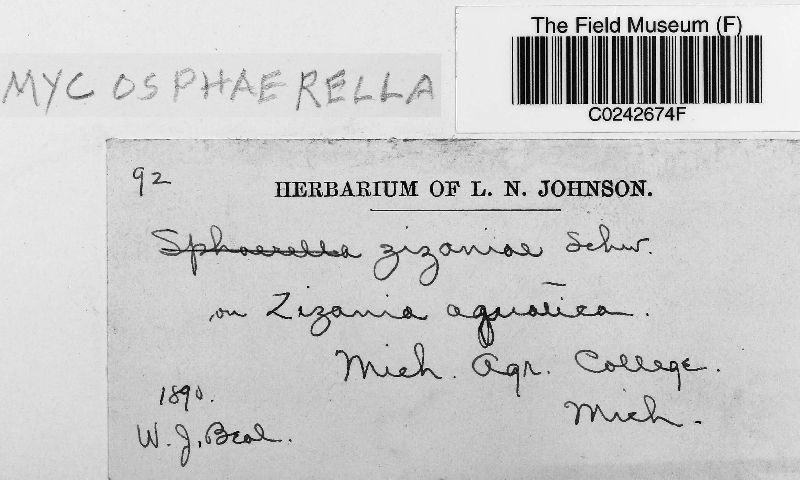 The Field Museum (F)
C0242674F
MYCOSPHAERELLA
92
HERBARIUM OF L. N. JOHNSON.
Sphaerella zizaniae Schw.
on Zizania aquatica.
Mich. Agr. College.
Mich.
1890.
W. J. Beal.